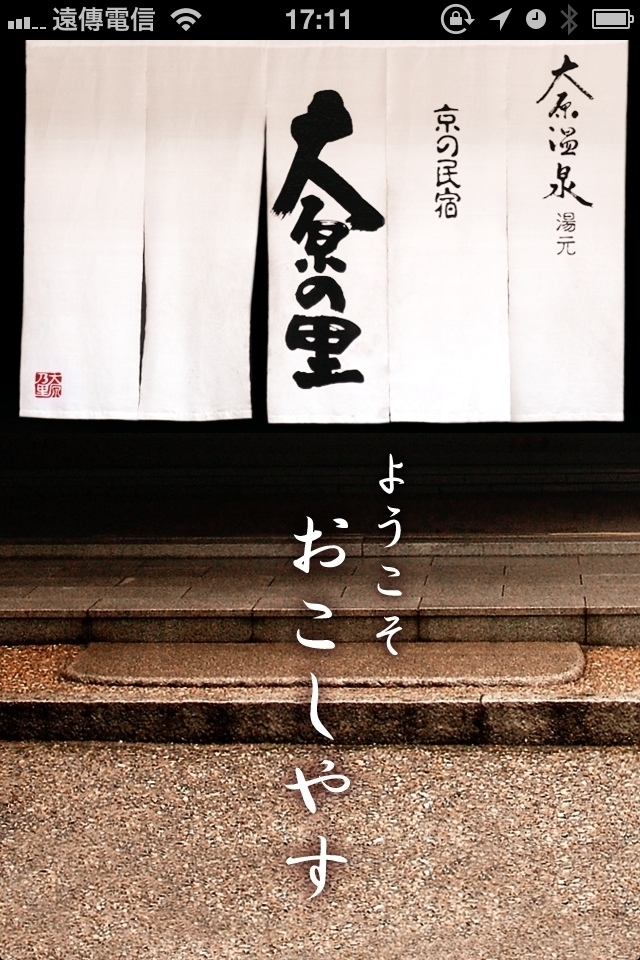 遠傳電信 17:11
大原温泉
湯元
京の民宿
大原の里
大原
乃里
ようこそ
おこしやす